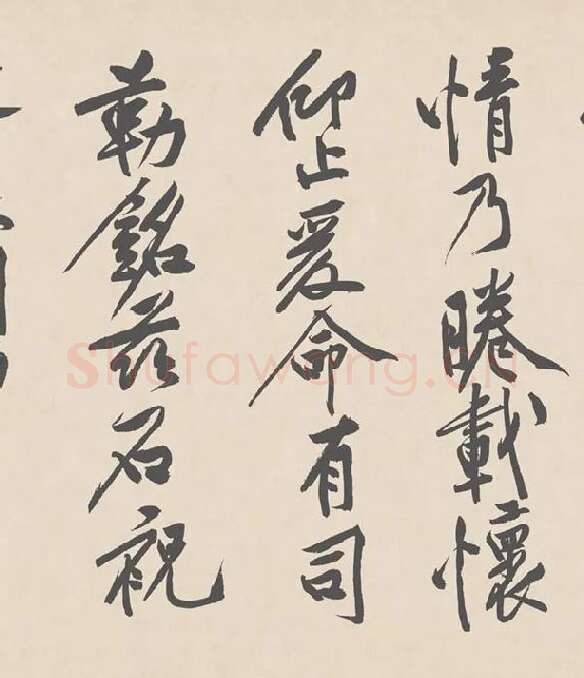 情乃睠載懷
仰止爰命有司
勒銘茲石祝
Shufawang.cn